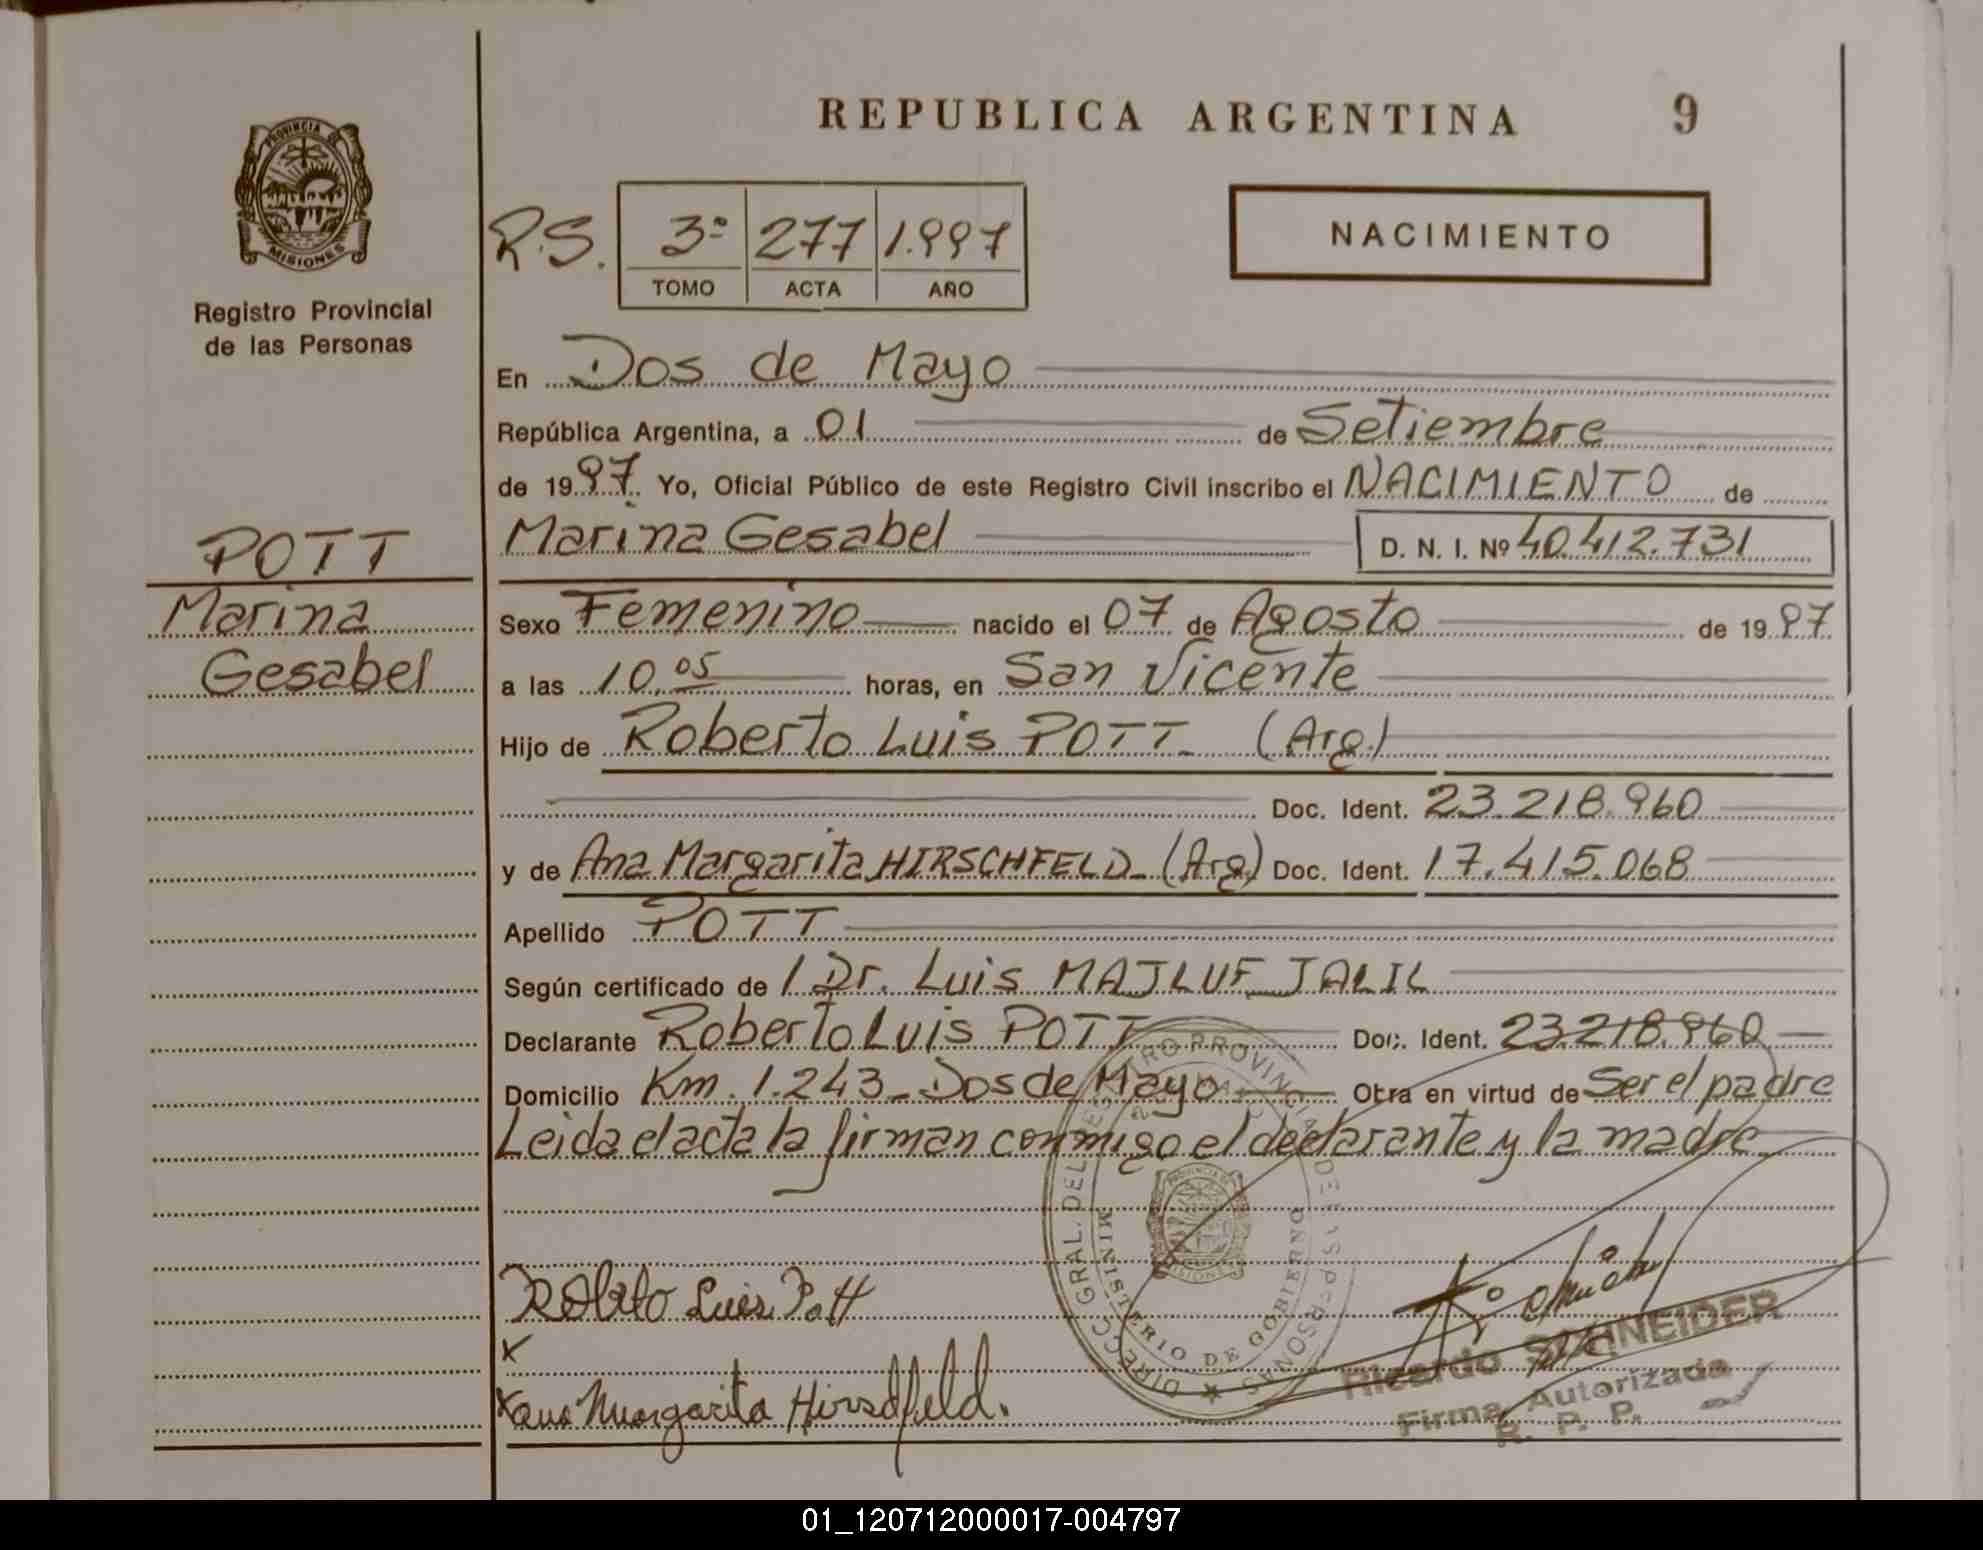 REPUBLICA ARGENTINA 9
PROVINCIA DE
MISIONES
Registro Provincial
de las Personas
R.S. 3º 277 1.997
TOMO ACTA AÑO
NACIMIENTO
En Dos de Mayo
República Argentina, a 01 de Setiembre
de 1997. Yo, Oficial Público de este Registro Civil inscribo el NACIMIENTO de
Marina Gesabel D. N. I. Nº 40.412.731
POTT
Marina
Gesabel
Sexo Femenino nacido el 07 de Agosto de 1997
a las 10,05 horas, en San Vicente
Hijo de Roberto Luis POTT (Arg.)
Doc. Ident. 23.218.960
y de Ana Margarita HIRSCHFELD (Arg.) Doc. Ident. 17.415.068
Apellido POTT
Según certificado de / Dr. Luis MAJLUF JALIL
Declarante Roberto Luis POTT Doc. Ident. 23.218.960
Domicilio Km. 1.243 - Dos de Mayo Obra en virtud de Ser el padre
Leida el acta la firman conmigo el declarante y la madre
DIRECC. GRAL. DEL REGISTRO PROVINCIAL DE LAS PERSONAS
MINISTERIO DE GOBIERNO
PROVINCIA DE
MISIONES
Roberto Luis Pott
x
x Ana Margarita Hirschfeld.
Ricardo SCHNEIDER
Firma Autorizada
R. P. P.
01_120712000017-004797